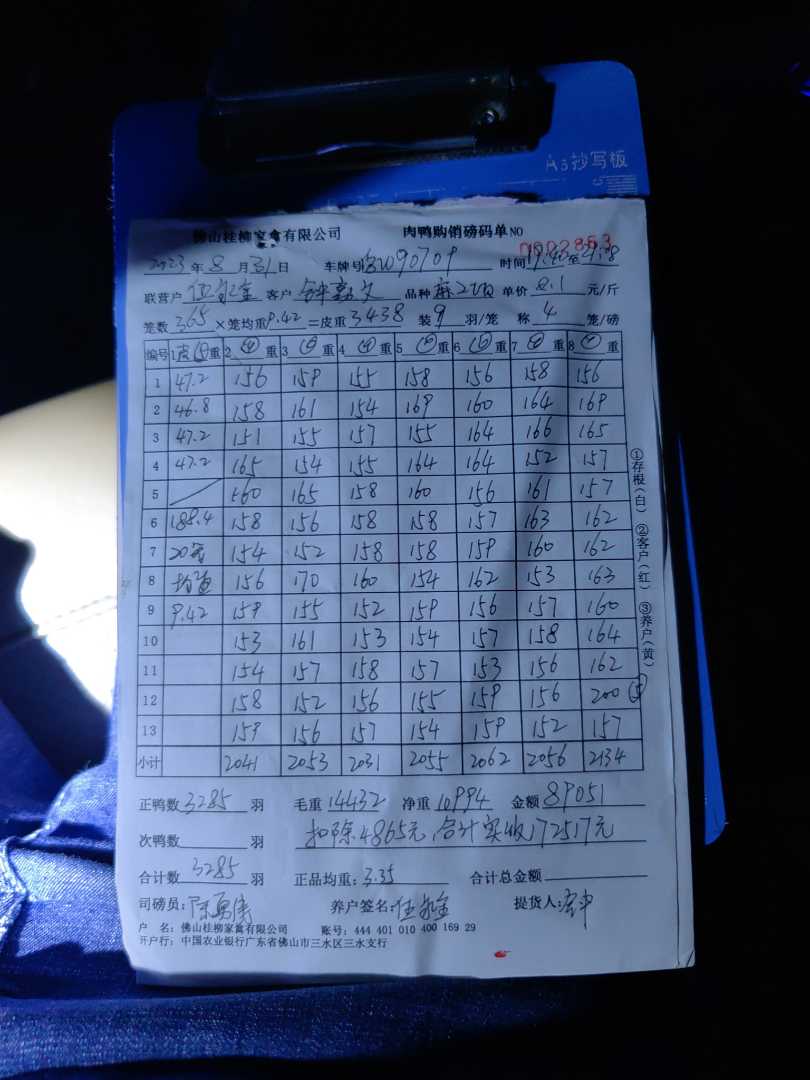 A3抄写板
佛山桂柳家禽有限公司 肉鸭购销磅码单 NO 0002853
2023年8月31日 车牌号 90709 时间 至
联营户 伍 客户 钟嘉文 品种 单价 8.1 元/斤
笼数 365 ×笼均重 9.42 =皮重 3438 装 9 羽/笼 称 4 笼/磅
编号 1 皮 重 2 重 3 重 4 重 5 重 6 重 7 重 8 重
1 47.2 156 159 155 158 156 158 156
2 46.8 158 161 154 169 160 164 169
3 47.2 151 155 157 155 164 166 165
4 47.2 165 154 155 164 164 152 157
5 160 165 158 160 156 161 157
6 188.4 158 156 158 158 157 163 162
7 20 154 152 158 158 159 160 162
8 156 170 160 154 162 153 163
9 9.42 159 155 152 159 156 157 160
10 153 161 153 154 157 158 164
11 154 157 158 157 153 156 162
12 158 152 156 155 159 156 200 ⑤
13 159 156 157 154 159 152 157
小计 2041 2053 2031 2055 2062 2056 2134
①存根(白) ②客户(红) ③养户(黄)
正鸭数 3285 羽 毛重 14432 净重 10994 金额 89051
次鸭数 羽 扣除4865元,合计实收 72517元
合计数 3285 羽 正品均重: 3.35 合计总金额
司磅员: 陈 养户签名: 伍 提货人:
户 名: 佛山桂柳家禽有限公司 账号: 444 401 010 400 169 29
开户行: 中国农业银行广东省佛山市三水区三水支行